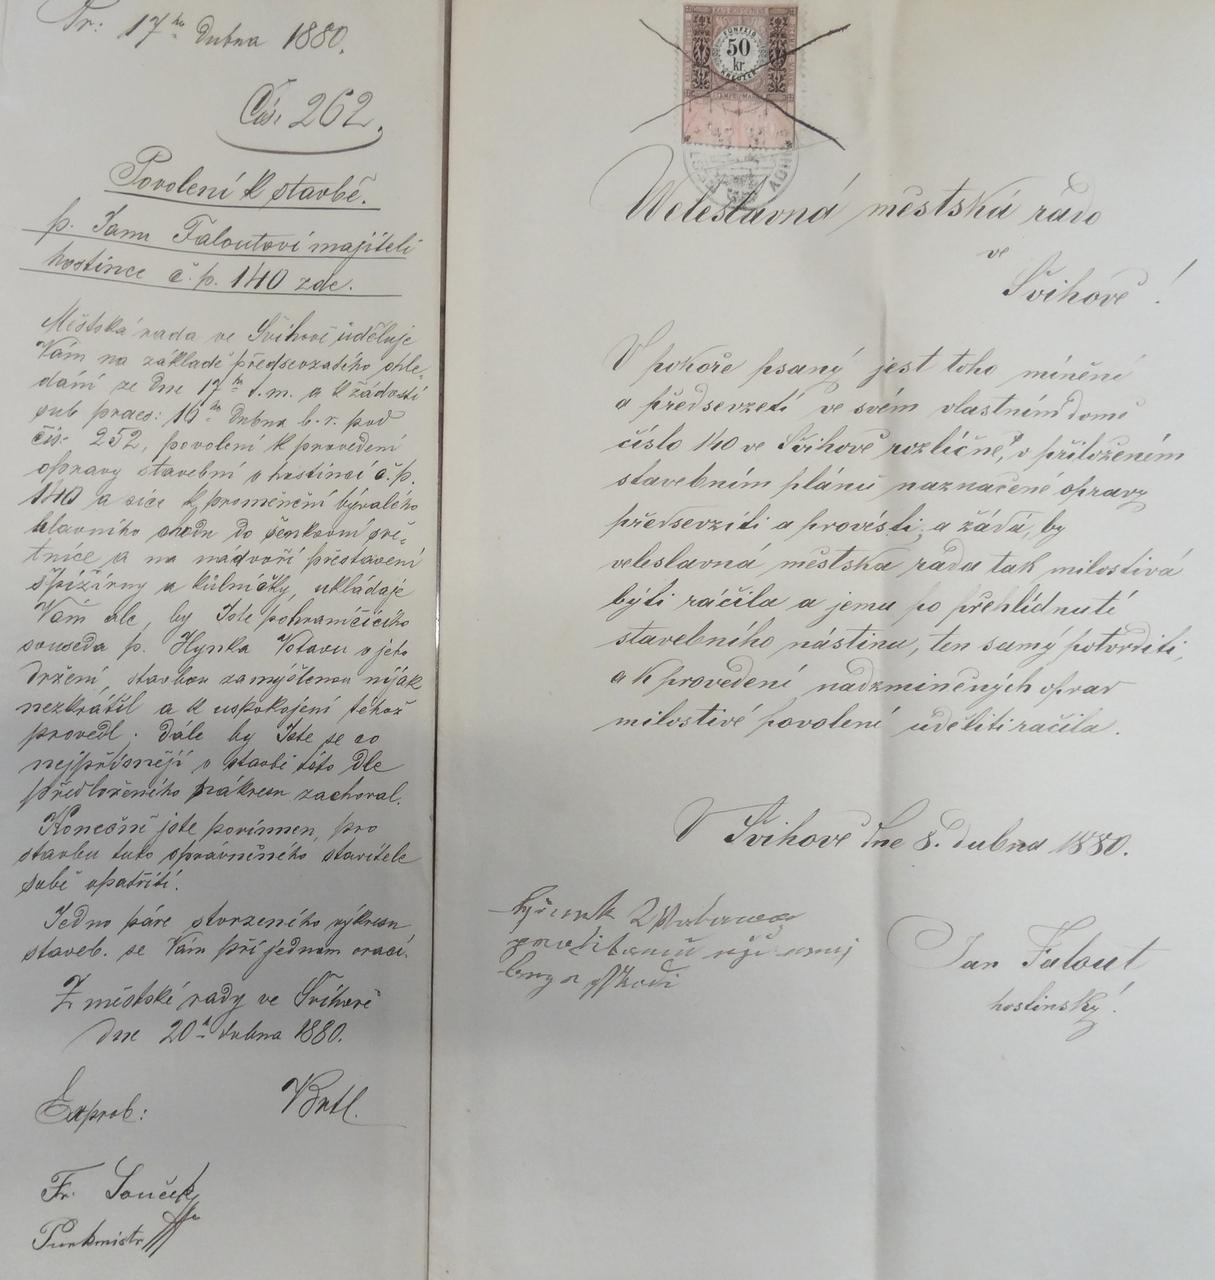 Pr: 17ho dubna 1880.
Čís. 262.
Povolení k stavbě.
p. Janu Faloutovi majiteli
hostince č. p. 140 zde.
Městská rada ve Švihově uděluje
Vám na základě předsevzatého ohle-
dání ze dne 17ho t. m. a k žádosti
sub praes: 10ho dubna b. r. pod
čís. 252, povolení k provedení
opravy stavební v hostinci č. p.
140 a sice k proměnění bývalého
hlavního chodu do šenkovní svě-
tnice a na nádvoří přestavení
špižírny a kůlničky, ukládaje
Vám ale, by Jste pohraničícího
souseda p. Hynka Votavu v jeho
držení, stavbou zamýšlenou niják
nezkrátil a k uspokojení téhož
provedl. Dále by Jste se co
nejpřísněji v stavbě této dle
předloženého nákresu zachoval.
Konečně jste povinnen, pro
stavbu tuto oprávněného stavitele
sobě opatřiti.
Jedno páre stvrzeného výkresu
staveb. se Vám při jednom vrací.
Z městské rady ve Švihově
dne 20ho dubna 1880.
Exprob:
Brtl.
Fr. Souček
Purkmistr
FÜNFZIG
50
kr.
KREUZER
STEMPELMARKE
Weleslavná městská rado
ve
Švihově!
V pokoře psaný jest toho mínění
a předsevzetí ve svém vlastním domě
číslo 140 ve Švihově rozličné, v přiloženém
stavebním plánu naznačené opravy
předsevzíti a provésti, a žádá, by
veleslavná městská rada tak milostivá
býti ráčila a jemu po přehlídnutí
stavebního nástinu, ten samý potvrditi,
a k provedení nadzmíněných oprav
milostivé povolení uděliti račila.
V Švihově dne 8. dubna 1880.
Jan Falout
hostinský.